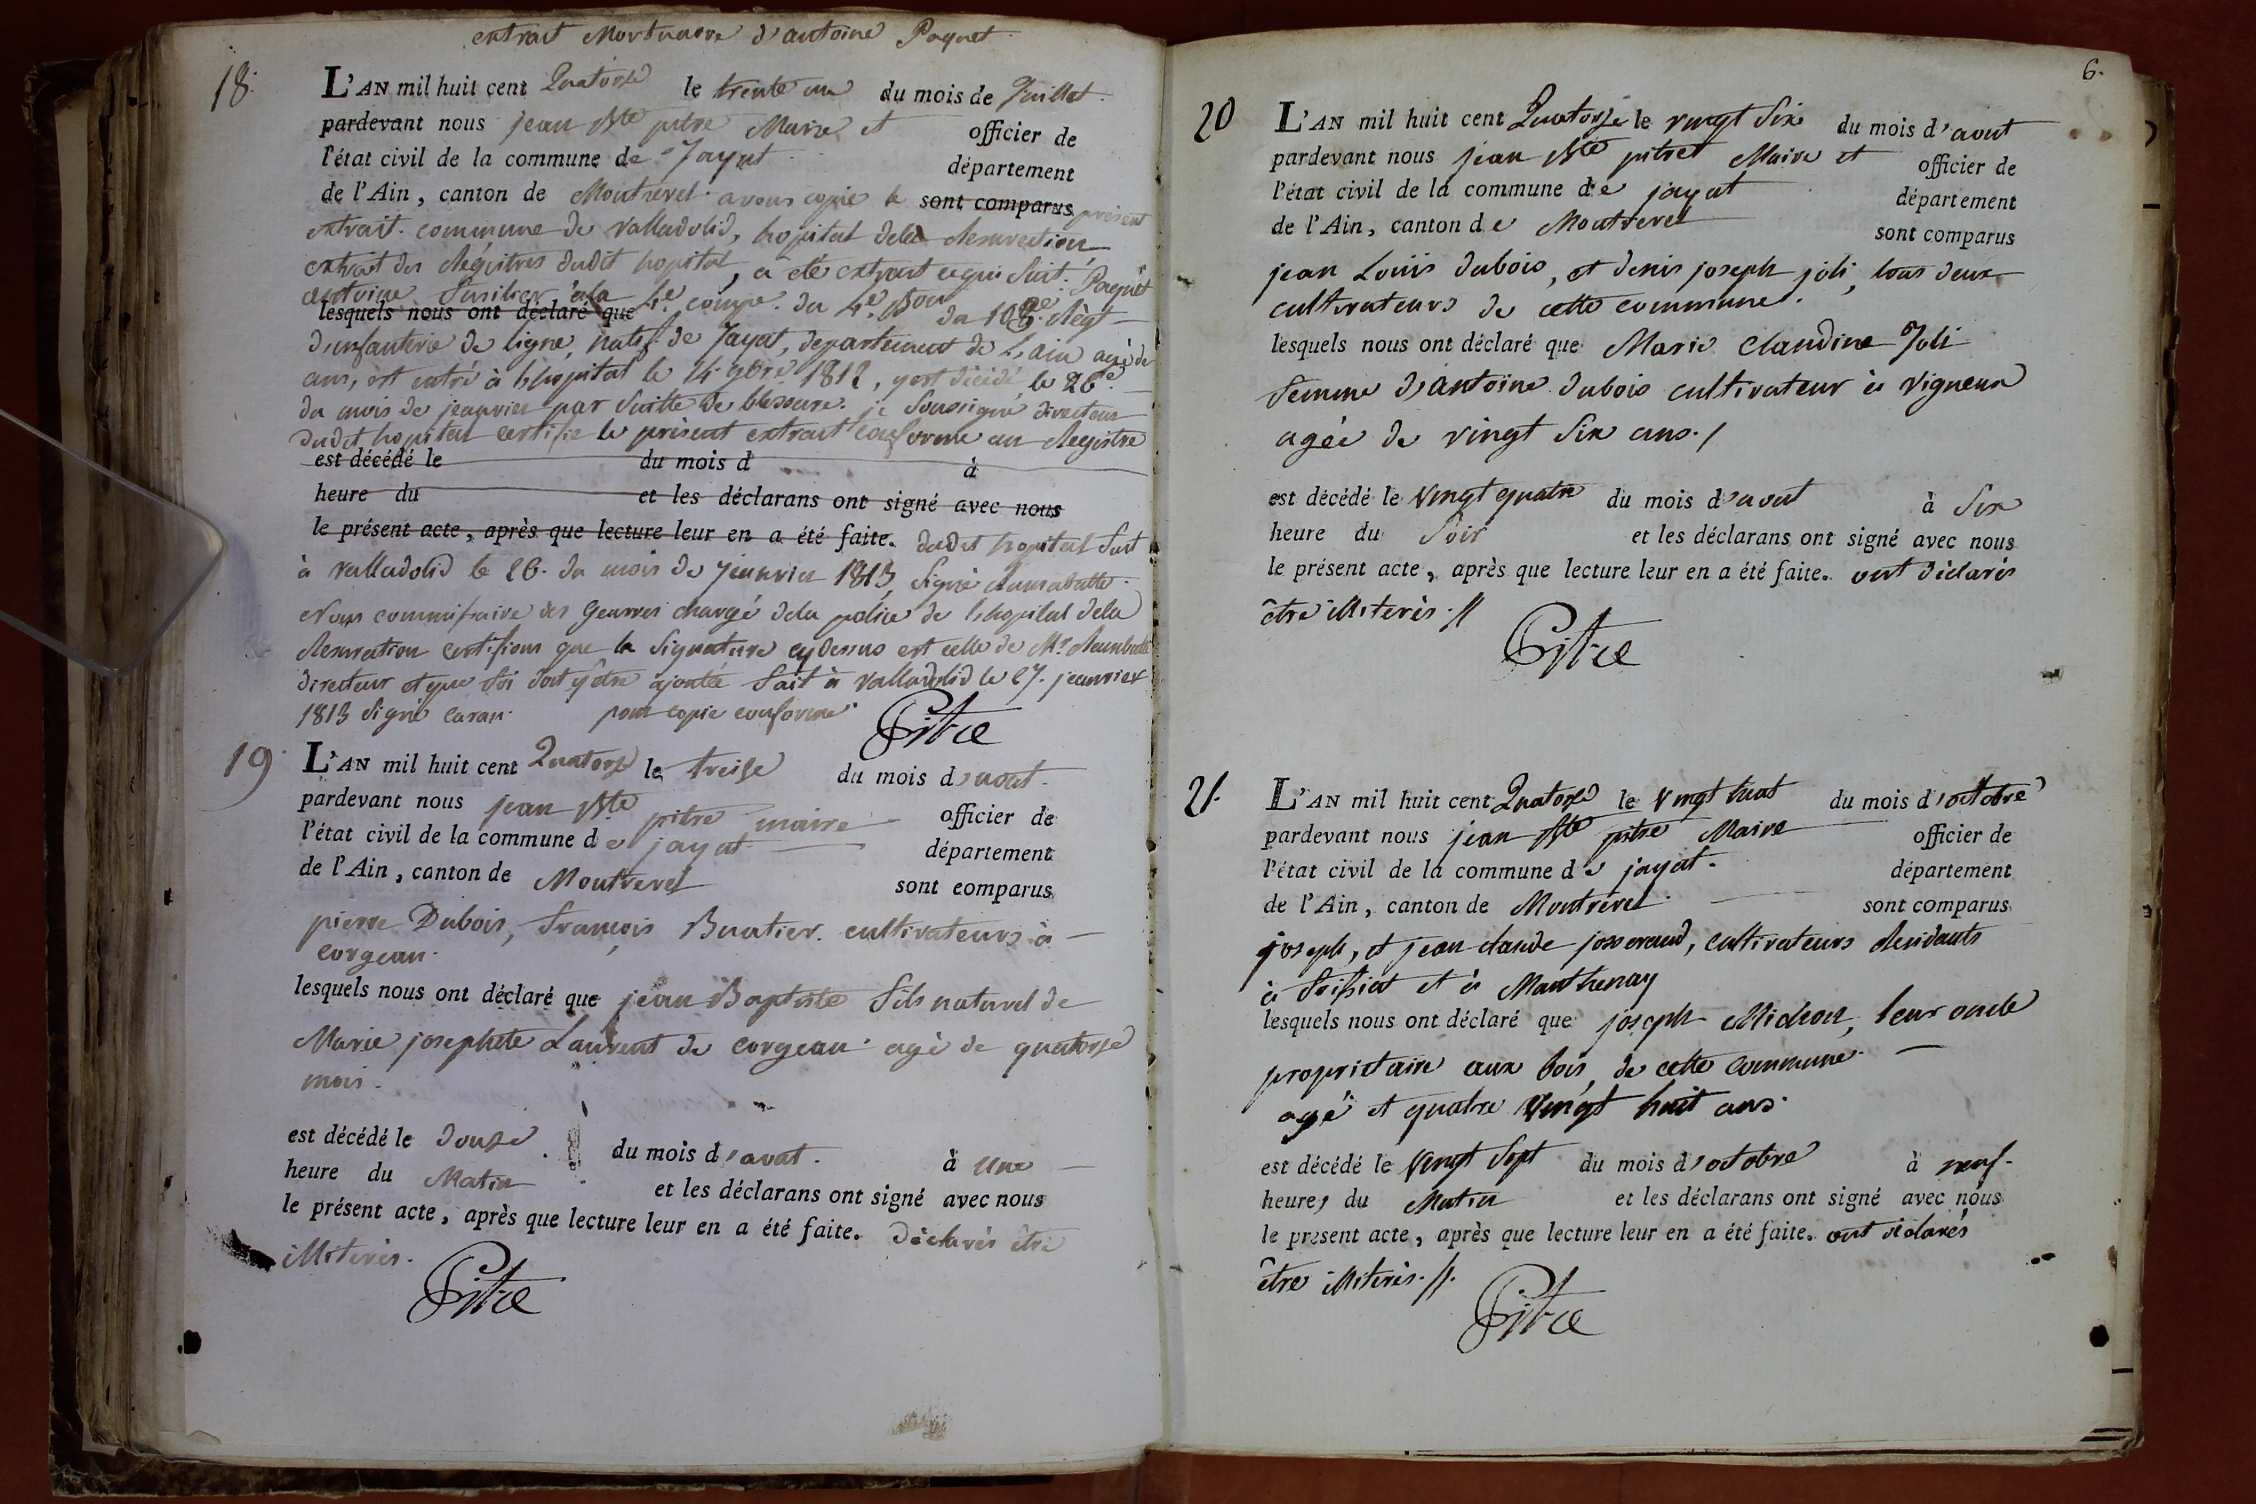 extrait Mortuaire d'antoine Paquet
18.
L'AN mil huit cent Quatorze le trente un du mois de Juillet.
pardevant nous jean Bte pitre Maire et officier de
l'état civil de la commune de Jayat département
de l'Ain, canton de Montrevel avons copie le sont comparus présent
extrait. commune de Valladolid, hopital dela Resurection
extrait des Régitres dudit hopital, a été extrait ce qui suit: Paquet
antoine fusilier à la 4e. compe. du 4e. Bon du 103e. Régt
lesquels nous ont déclaré que
d'infanterie de ligne, natif de Jayat, departement de L'ain agé de
ans, est entré à l'hopital le 14 9bre 1812, y est décédé le 26e
du mois de jeanvier par suitte de blessure. je soussigné directeur
dudit hopital certifie le présent extrait conforme au Registre
est décédé le du mois d à
heure du et les déclarans ont signé avec nous
le présent acte, après que lecture leur en a été faite. dudit hopital fait
à Valladolid le 26. du mois de jeanvier 1813, Signé
Nous commissaire des Geurres chargé dela police de l'hopital dela
Resuration certifions que la Signature cy dessus est celle de Mr
directeur et que foi doit y être ajoutée fait à Valladolid le 27. jeanvier
1813 Signé Caran. pour copie conforme
Pitre
19
L'AN mil huit cent Quatorze le treise du mois d'aout.
pardevant nous jean Bte pitre maire officier de
l'état civil de la commune de jayat département
de l'Ain, canton de Montrevel sont comparus
pierre Dubois, françois Buatier. cultivateurs à
corgean.
lesquels nous ont déclaré que jean Baptiste fils naturel de
Marie josephete Laurent de corgean. agé de quatorze
mois.
est décédé le douze du mois d'aout. à une
heure du Matin et les déclarans ont signé avec nous
le présent acte, après que lecture leur en a été faite. déclarés être
illiterés.
Pitre
6.
20
L'AN mil huit cent Quatorze le vingt Six du mois d'aout
pardevant nous jean Bte pitre Maire et officier de
l'état civil de la commune de jayat département
de l'Ain, canton de Montrevel sont comparus
jean Louis dubois, et denis joseph joli, tous deux
cultivateurs de cette commune.
lesquels nous ont déclaré que Marie Claudine Joli
femme d'antoine dubois cultivateur à vigneux
agée de vingt Six ans./
est décédé le vingt quatre du mois d'aout à Six
heure du Soir et les déclarans ont signé avec nous
le présent acte, après que lecture leur en a été faite. ont déclarés
être illiterés.//
Pitre
21.
L'AN mil huit cent Quatorze le vingt huit du mois d'octobre
pardevant nous jean Bte pitre Maire officier de
l'état civil de la commune de jayat. département
de l'Ain, canton de Montrevel. sont comparus
joseph, et jean claude josserand, cultivateurs Residants
à foissiat et à Manthenay
lesquels nous ont déclaré que joseph Midron, leur oncle
proprietaire aux bois, de cette commune.
agé et quatre vingt huit ans.
est décédé le vingt Sept du mois d'octobre à neuf.
heures du Matin et les déclarans ont signé avec nous
le présent acte, après que lecture leur en a été faite. ont déclarés
être illiterés.//.
Pitre